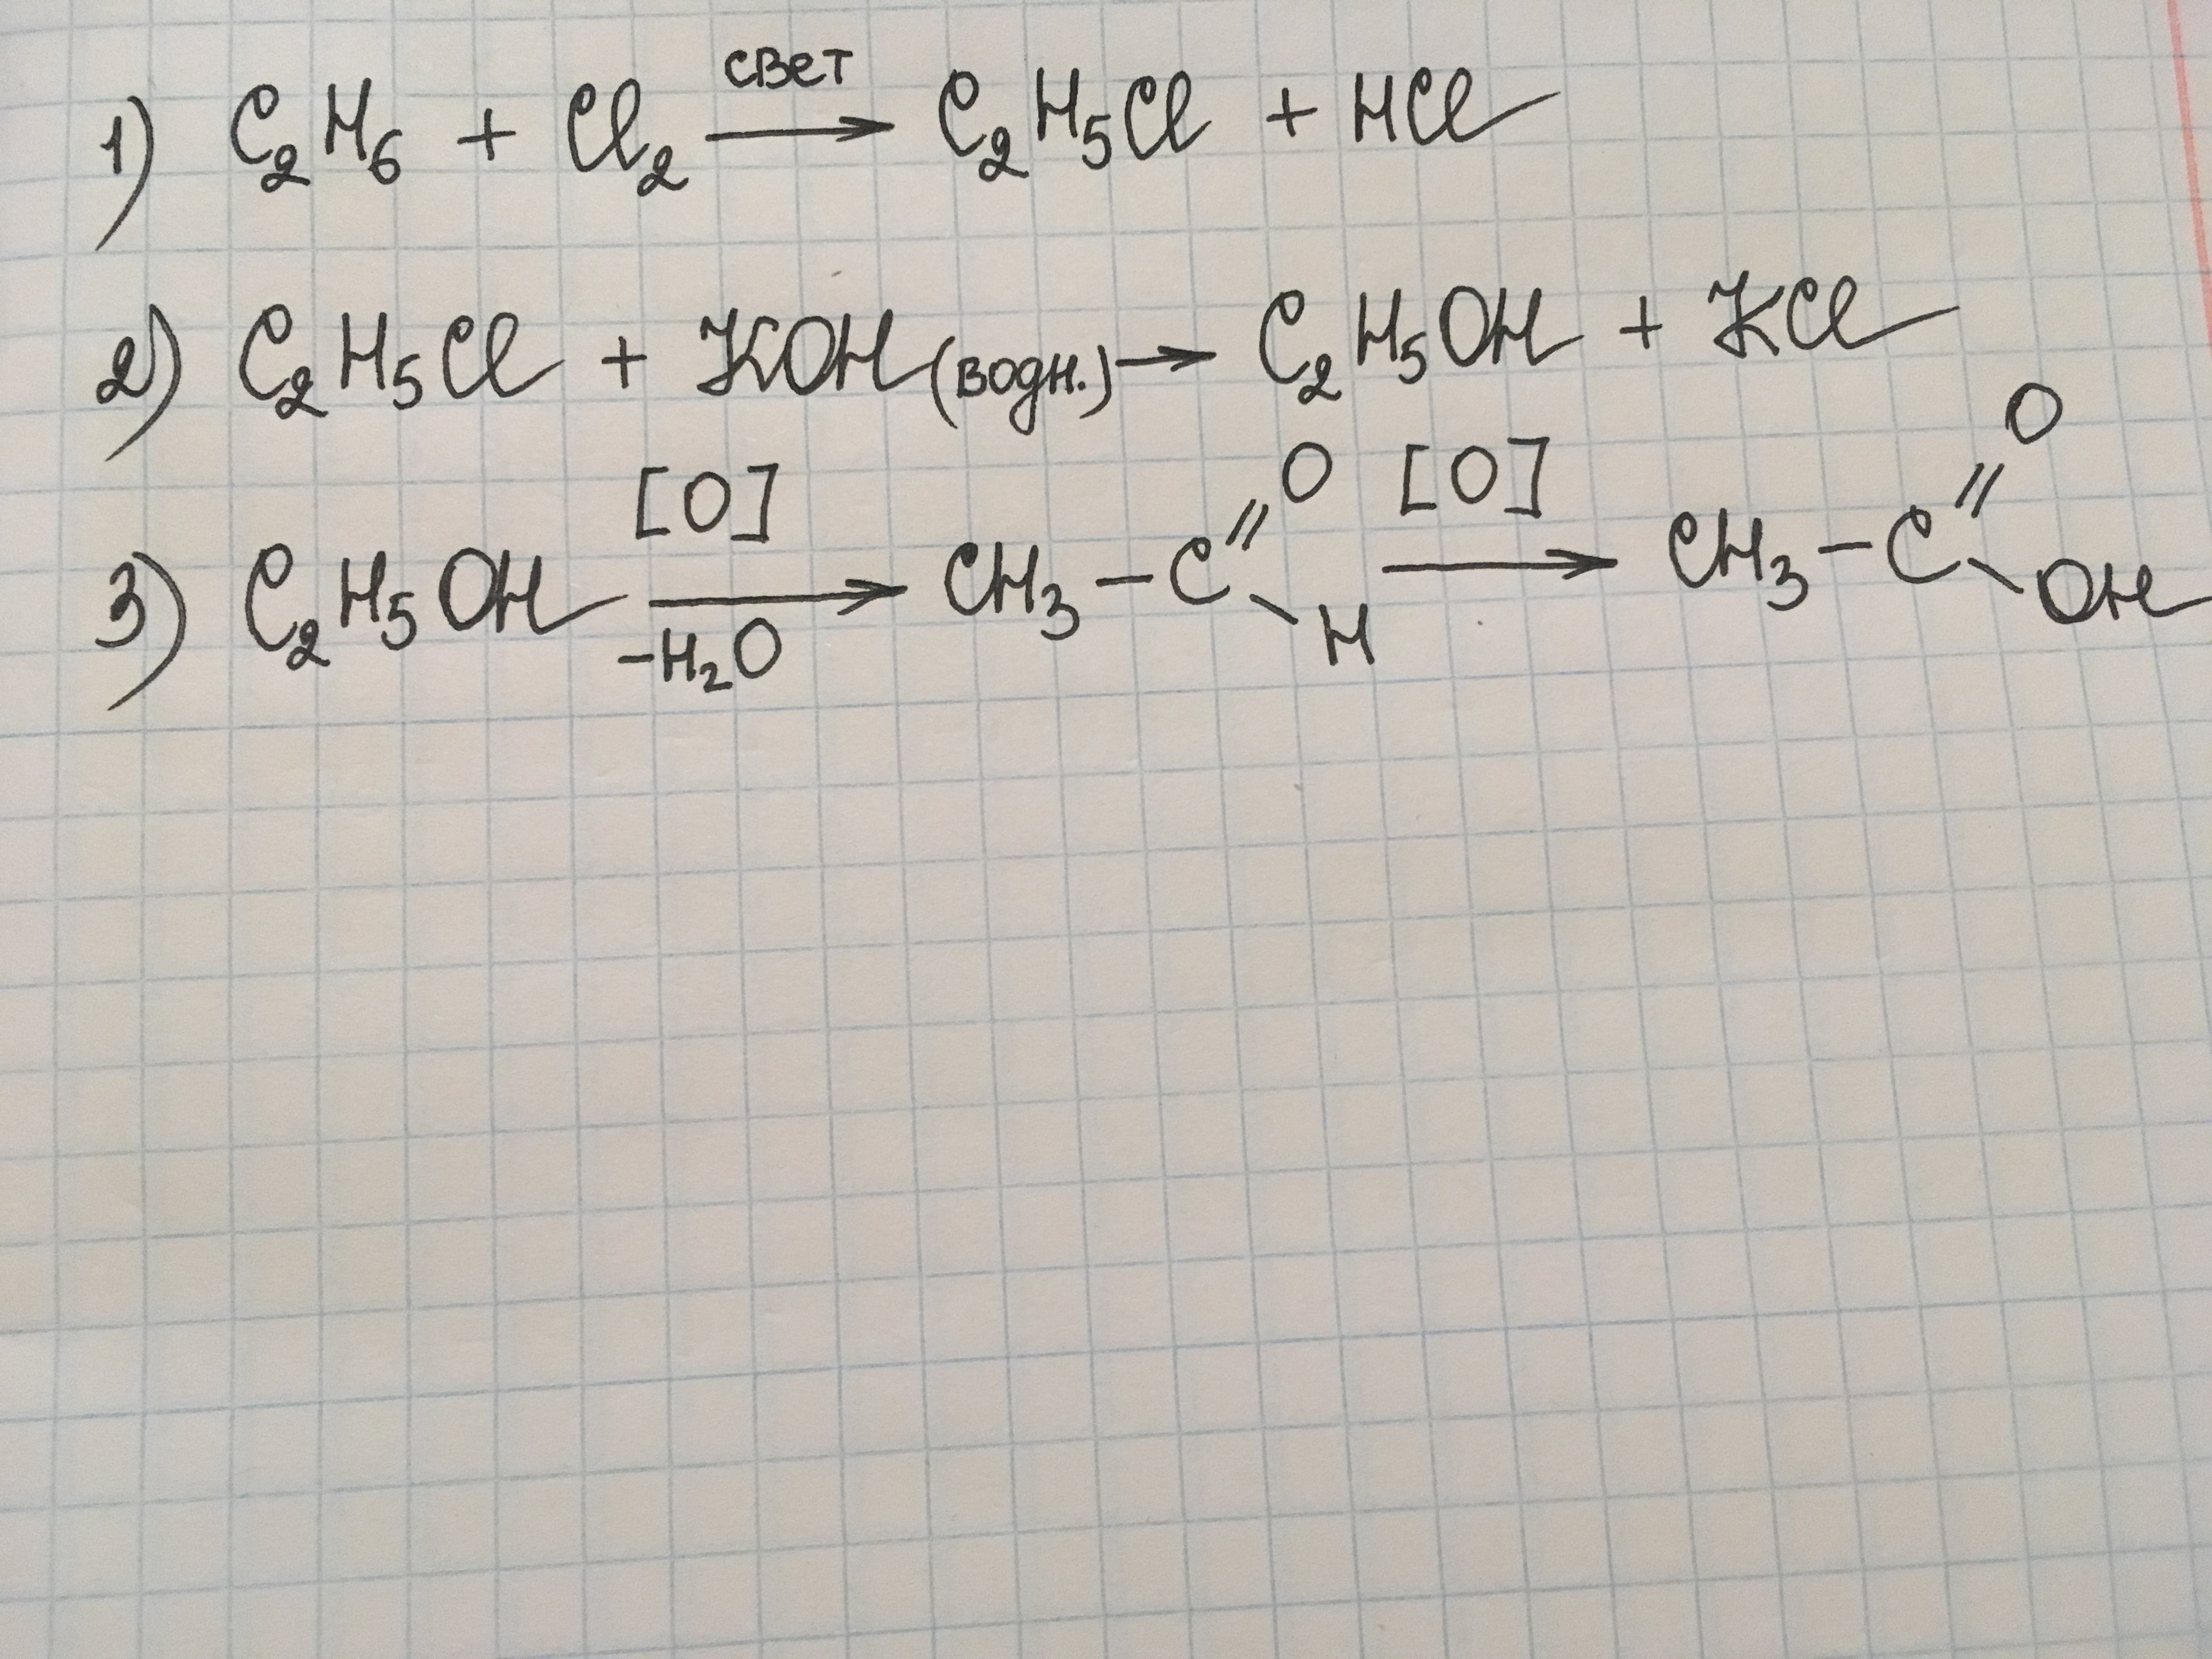 1) C₂H₆ + Cl₂ свет → C₂H₅Cl + HCl
2) C₂H₅Cl + KOH (водн.) → C₂H₅OH + KCl
3) C₂H₅OH [O] → -H₂O CH₃-C =O -H [O] → CH₃-C =O -OH